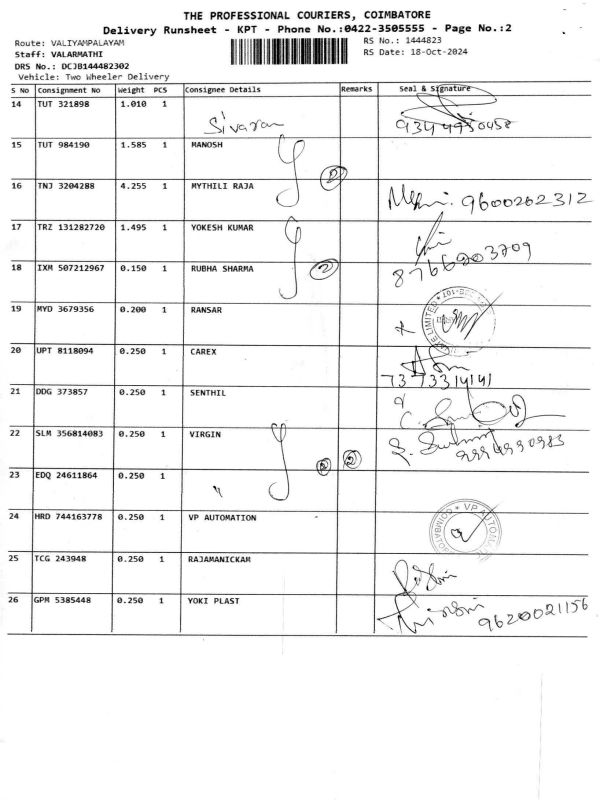 THE PROFESSIONAL COURIERS, COIMBATORE
Delivery Runsheet - KPT - Phone No.:0422-3505555 - Page No.:2
Route: VALIYAMPALAYAM
RS No.: 1444823
Staff: VALARMATHI
RS Date: 18-Oct-2024
DRS No.: DCJB144482302
Vehicle: Two Wheeler Delivery
S No Consignment No Weight PCS Consignee Details Remarks Seal & Signature
14 TUT 321898 1.010 1 Sivaram
9344950458
15 TUT 984190 1.585 1 MANOSH
2
16 TNJ 3204288 4.255 1 MYTHILI RAJA 9600262312
17 TRZ 131282720 1.495 1 YOKESH KUMAR
8766203709
18 IXM 507212967 0.150 1 RUBHA SHARMA 2
19 MYD 3679356 0.200 1 RANSAR
LIMITED
20 UPT 8118094 0.250 1 CAREX
7373314141
21 DDG 373857 0.250 1 SENTHIL
22 SLM 356814083 0.250 1 VIRGIN
2 2
23 EDQ 24611864 0.250 1 "
24 HRD 744163778 0.250 1 VP AUTOMATION
25 TCG 243948 0.250 1 RAJAMANICKAM
26 GPM 5385448 0.250 1 YOKI PLAST 9620021156